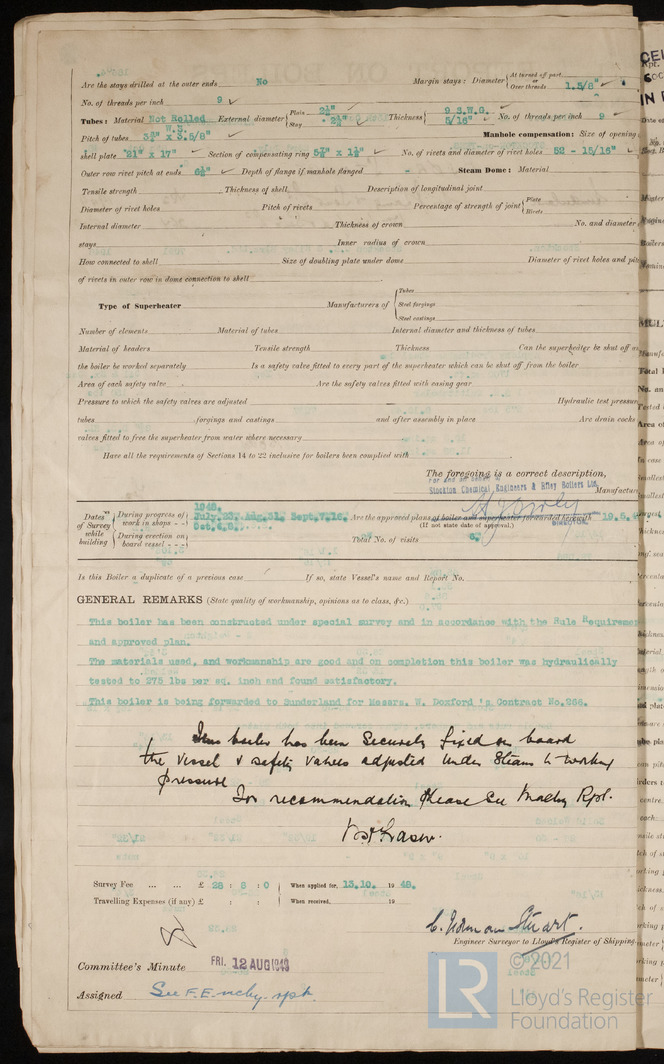 Are the stays drilled at the outer ends No Margin stays: Diameter { At turned off part, or Over threads 1.5/8" ✓
No. of threads per inch 9 ✓
Tubes: Material Not Rolled W.I. External diameter { Plain 2½" Stay 2½" ✓ Thickness { 9 S.W.G. 5/16" ✓ No. of threads per inch 9 ✓
Pitch of tubes x 3.5/8" Manhole compensation: Size of opening
shell plate 21" x 17" ✓ Section of compensating ring 5½" x 1½" ✓ No. of rivets and diameter of rivet holes 52 - 15/16" ✓
Outer row rivet pitch at ends 6½" ✓ Depth of flange if manhole flanged - Steam Dome: Material
Tensile strength Thickness of shell Description of longitudinal joint
Diameter of rivet holes Pitch of rivets Percentage of strength of joint { Plate Rivets
Internal diameter Thickness of crown No. and diameter
stays Inner radius of crown
How connected to shell Size of doubling plate under dome Diameter of rivet holes and
of rivets in outer row in dome connection to shell
Type of Superheater Manufacturers of { Tubes Steel forgings Steel castings
Number of elements Material of tubes Internal diameter and thickness of tubes
Material of headers Tensile strength Thickness Can the superheater be shut off
the boiler be worked separately Is a safety valve fitted to every part of the superheater which can be shut off from the boiler
Area of each safety valve Are the safety valves fitted with easing gear
Pressure to which the safety valves are adjusted Hydraulic test pressure
tubes forgings and castings and after assembly in place Are drain cocks
valves fitted to free the superheater from water where necessary
Have all the requirements of Sections 14 to 22 inclusive for boilers been complied with
The foregoing is a correct description,
For and on behalf of
Stockton Chemical Engineers & Riley Boilers Ltd.
Manufactur
DIRECTOR
Dates of Survey while building { During progress of work in shops - - 1948. July, 23, Aug, 31, Sept, 7, 16, Oct, 6, 8. Are the approved plans of boiler and superheater forwarded herewith 19.5.4
During erection on board vessel - - - (If not state date of approval.)
Total No. of visits 6
Is this Boiler a duplicate of a previous case If so, state Vessel's name and Report No.
GENERAL REMARKS (State quality of workmanship, opinions as to class, &c.)
This boiler has been constructed under special survey and in accordance with the Rule Requiremen
and approved plan.
The materials used, and workmanship are good and on completion this boiler was hydraulically
tested to 275 lbs per sq. inch and found satisfactory.
This boiler is being forwarded to Sunderland for Messrs. W. Doxford's Contract No.266.
This boiler has been securely fixed on board
the vessel & safety valves adjusted under steam to working
pressure
For recommendation please see Machy Rpt.
Survey Fee ... ... £ 28 : 8 : 0 When applied for, 13.10. 19 48.
Travelling Expenses (if any) £ : : When received, 19
C. Norman Stuart.
Engineer Surveyor to Lloyd's Register of Shipping.
Committee's Minute FRI. 12 AUG 1949
Assigned See F.E. mchy. rpt.
©2021
LR Lloyd's Register
Foundation